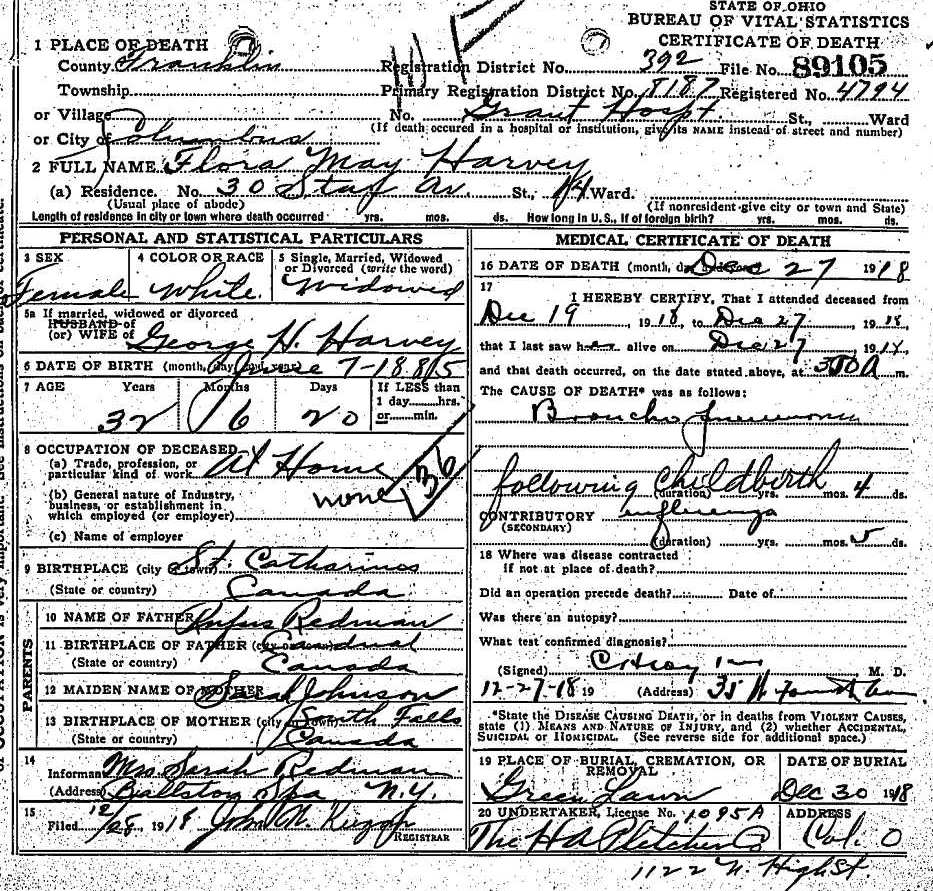 STATE OF OHIO
BUREAU OF VITAL STATISTICS
CERTIFICATE OF DEATH
1 PLACE OF DEATH
County Franklin Registration District No. 392 File No. 89105
Township Primary Registration District No. 8187 Registered No. 4794
or Village No. Grant Hospt. St., Ward
(If death occured in a hospital or institution, give its NAME instead of street and number)
or City of Columbus
2 FULL NAME Flora May Harvey
(a) Residence. No. 30 Av. St., Ward.
(Usual place of abode) (If nonresident give city or town and State)
Length of residence in city or town where death occurred yrs. mos. ds. How long in U.S., if of foreign birth? yrs. mos. ds.
PERSONAL AND STATISTICAL PARTICULARS
3 SEX 4 COLOR OR RACE 5 Single, Married, Widowed
or Divorced (write the word)
Female White. Widowed
5a If married, widowed or divorced
HUSBAND of
(or) WIFE of George H. Harvey
6 DATE OF BIRTH (month, day and year) June 7-1885
7 AGE Years Months Days If LESS than
1 day hrs.
or min.
32 6 20
8 OCCUPATION OF DECEASED
(a) Trade, profession, or
particular kind of work At Home
136
(b) General nature of Industry,
business, or establishment in
which employed (or employer) none
(c) Name of employer
9 BIRTHPLACE (city or town) St. Catharines
(State or country) Canada
PARENTS
10 NAME OF FATHER Rufus Redman
11 BIRTHPLACE OF FATHER (city or town)
(State or country) Canada
12 MAIDEN NAME OF MOTHER Sarah Johnson
13 BIRTHPLACE OF MOTHER (city or town) Falls
(State or country) Canada
14
Informant Mrs. Sarah Redman
(Address) Ballston Spa N.Y.
15
Filed 12/28, 1918 John REGISTRAR
MEDICAL CERTIFICATE OF DEATH
16 DATE OF DEATH (month, day and year) Dec 27 1918
17
I HEREBY CERTIFY, That I attended deceased from
Dec 19, 1918, to Dec 27, 1918,
that I last saw her alive on Dec 27, 1918,
and that death occurred, on the date stated above, at 350A m.
The CAUSE OF DEATH* was as follows:
Broncho pneumonia
following childbirth
(duration) yrs. mos. 4 ds.
CONTRIBUTORY influenza
(SECONDARY)
(duration) yrs. mos. 5 ds.
18 Where was disease contracted
if not at place of death?
Did an operation precede death? Date of
Was there an autopsy?
What test confirmed diagnosis?
(Signed) M. D.
12-27-18 19 (Address) 35
*State the DISEASE CAUSING DEATH, or in deaths from VIOLENT CAUSES,
state (1) MEANS AND NATURE OF INJURY, and (2) whether ACCIDENTAL,
SUICIDAL or HOMICIDAL. (See reverse side for additional space.)
19 PLACE OF BURIAL, CREMATION, OR
REMOVAL DATE OF BURIAL
Green Lawn Dec 30 1918
20 UNDERTAKER, License No. 1095A ADDRESS
The H A Pletcher Co Col. O
1122 N. High St.